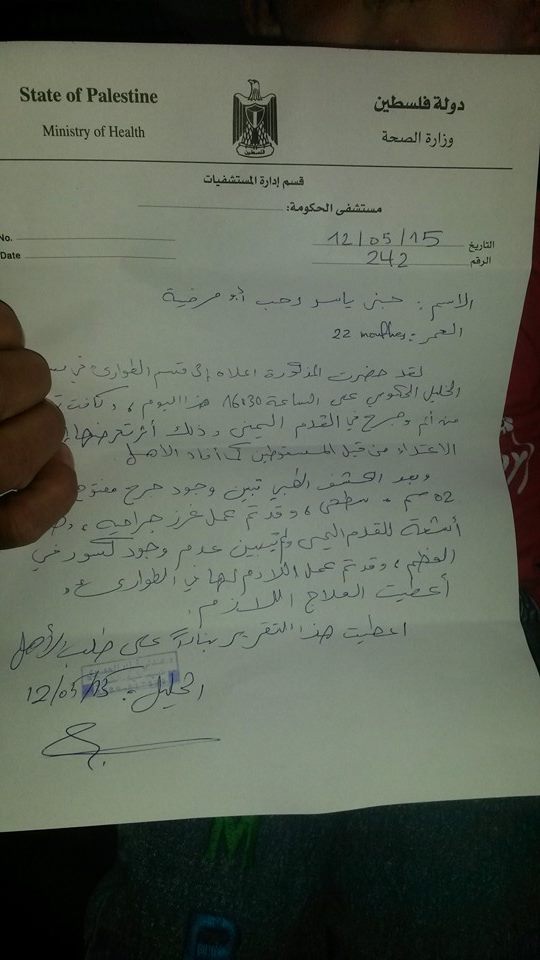 State of Palestine
Ministry of Health
دولة فلسطين
وزارة الصحة
فلسطين
قسم إدارة المستشفيات
مستشفى الحكومة:
No.
Date
التاريخ 12/05/15
الرقم 242
الاسم: ياسر أبو مرخية
العمر: 22
لقد حضرت المذكورة اعلاه إلى قسم الطوارئ في
الخليل الحكومي على الساعة 16:30 هذا اليوم، وكانت
من ألم وجرح في القدم اليمنى وذلك أثر تعرضها
الاعتداء من قبل المستوطنين كما أفاد الأهل.
وبعد الكشف الطبي تبين وجود جرح
02 سم، سطحي، وقد تم عمل غرز جراحية،
أشعة للقدم اليمنى ولم يتبين عدم وجود كسور في
العظم، وقد تم عمل اللازم لها في الطوارئ
أعطيت العلاج اللازم.
اعطيت هذا التقرير بناءاً على طلب الأهل
الخليل: 12/05/15